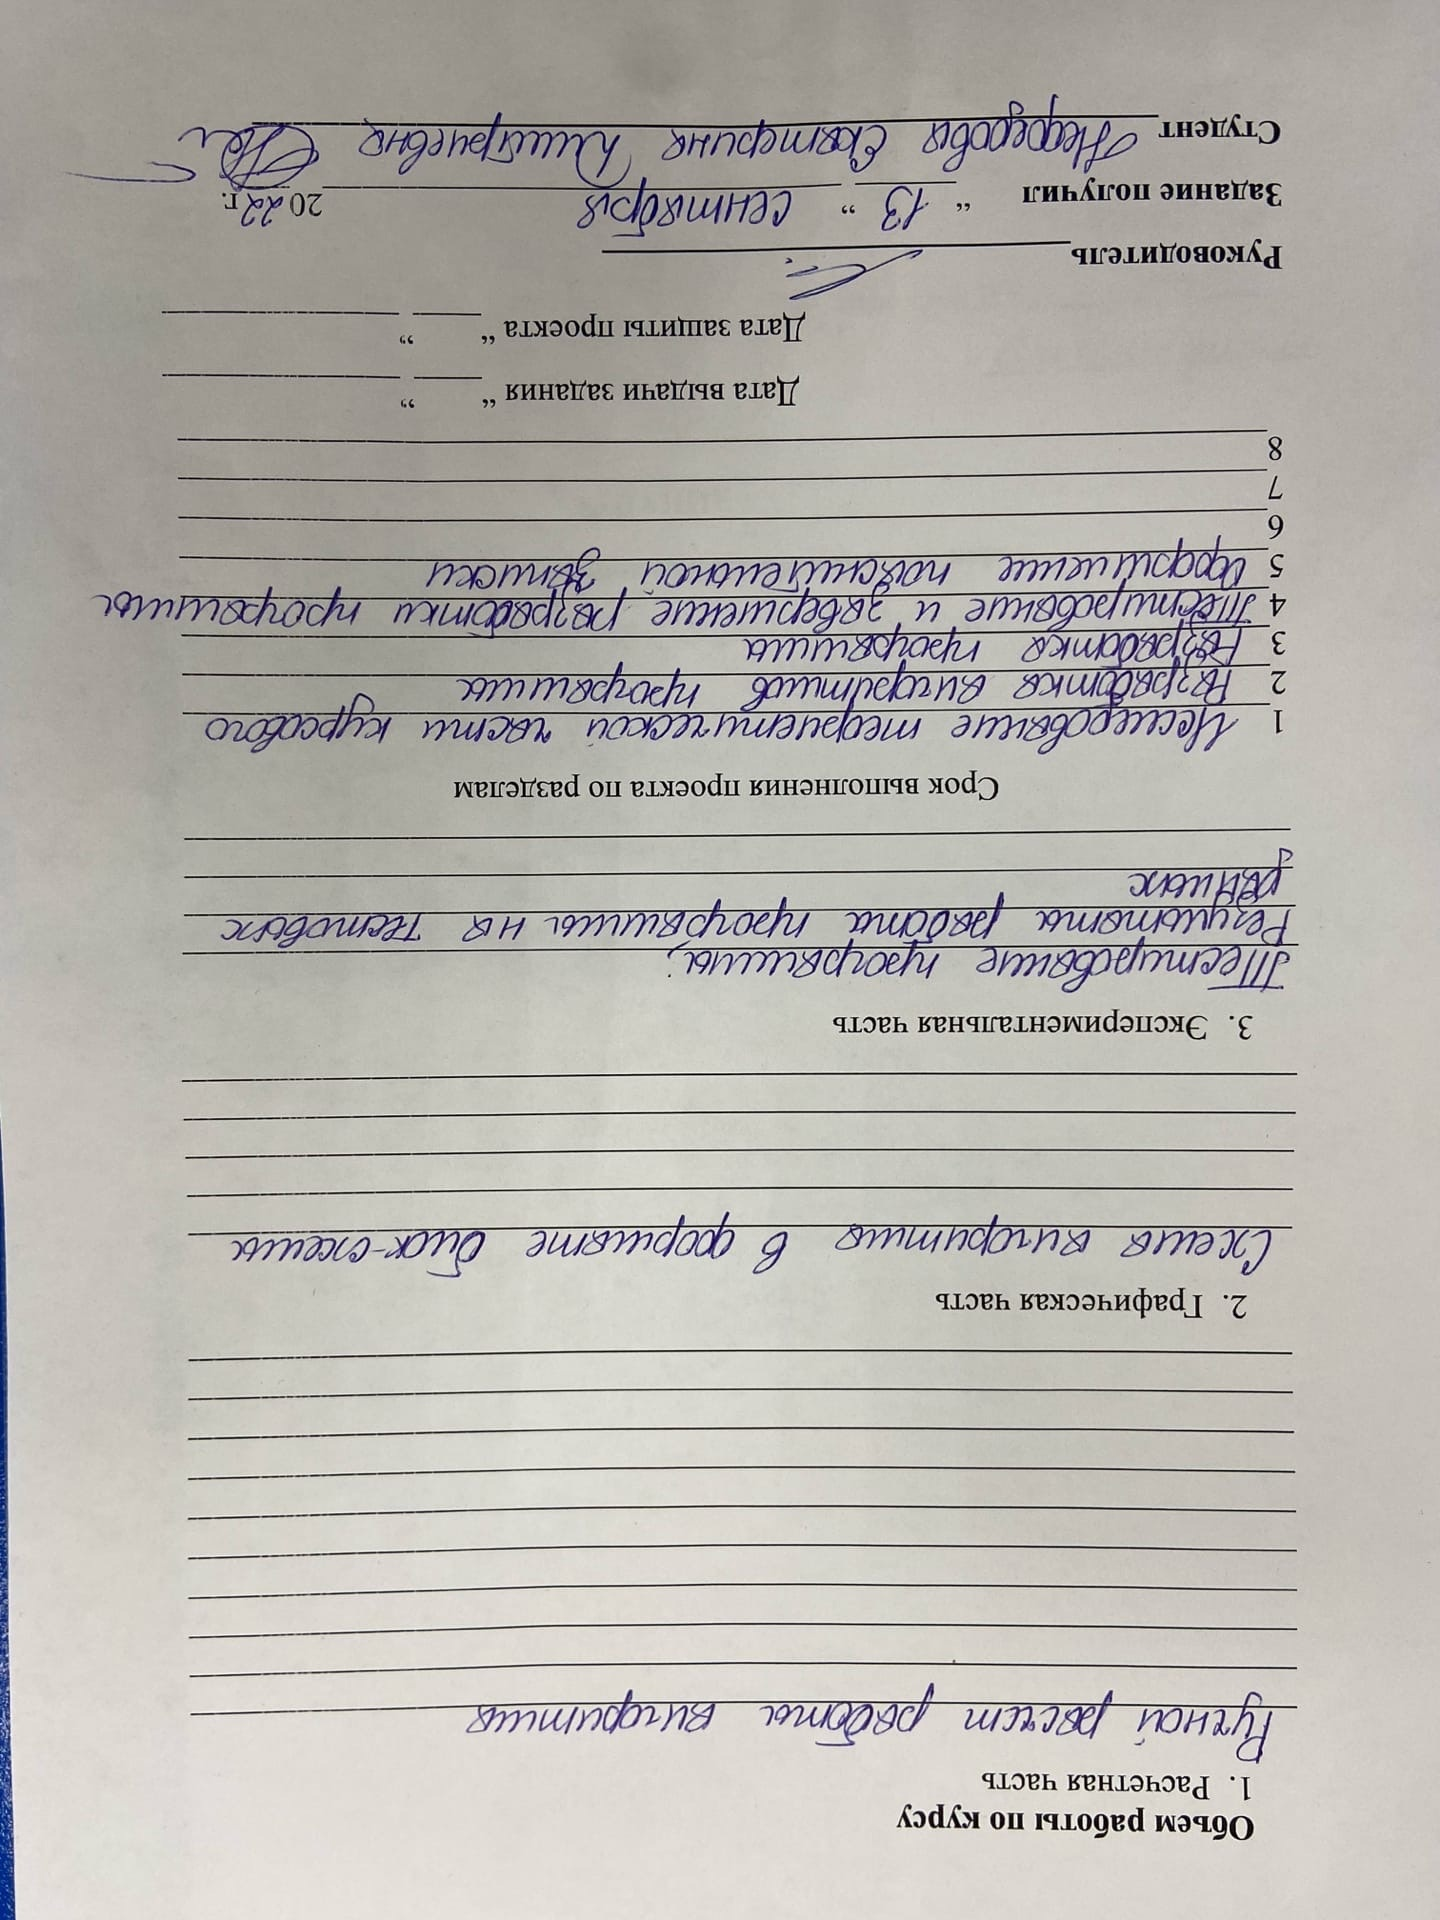 Объем работы по курсу
1. Расчетная часть
Ручной расчет работы алгоритма
2. Графическая часть
Схема алгоритма в формате блок-схемы
3. Экспериментальная часть
Тестирование программы;
Результаты работы программы на тестовых
данных
Срок выполнения проекта по разделам
1 Исследование теоретической части курсового
2 Разработка алгоритмов программы
3 Разработка программы
4 Тестирование и завершение разработки программы
5 Оформление пояснительной записки
6
7
8
Дата выдачи задания “____” ____
Дата защиты проекта “____” ____
Руководитель
Задание получил “13” сентября 2022 г.
Студент Нефедова Екатерина Дмитриевна